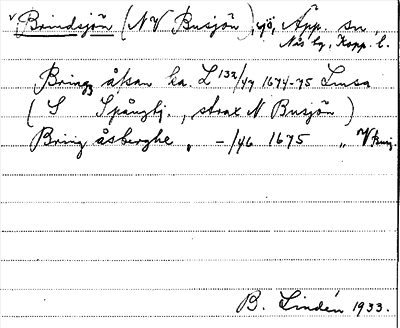 v Brindsjön (NV Busjön), sjö, Äpp. sn,
Näs bg, Kopp. l.
Bring åsan ka. L 132/47 1674-75 Lmsa
(S Spånglj., strax N Busjön)
Bring åsberghe „ -/46 1675 „
B. Lindén 1933.